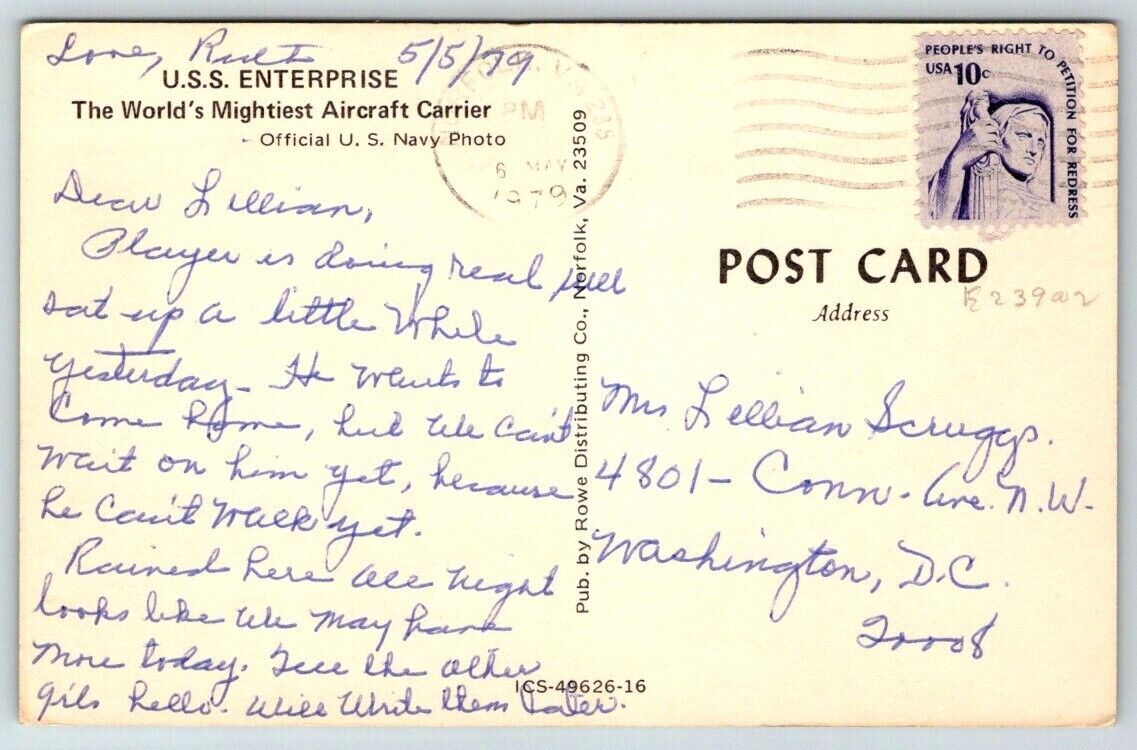 Love, Ruth 5/5/79
U.S.S. ENTERPRISE
The World's Mightiest Aircraft Carrier
Official U. S. Navy Photo
Dear Lillian,
Player is doing real well
sat up a little While
yesterday - He wants to
Come home, but We can't
wait on him yet, because
he can't walk yet.
Rained here all night
looks like we may have
more today. Tell the other
girls hello. Will Write them Later.
VA 235
PM
6 MAY
1979
Pub. by Rowe Distributing Co., Norfolk, Va. 23509
ICS-49626-16
PEOPLE'S RIGHT TO PETITION FOR REDRESS
USA 10c
POST CARD
Address
E239a2
Mrs Lillian Scruggs.
4801 - Conn. Ave. N.W.
Washington, D.C.
20008